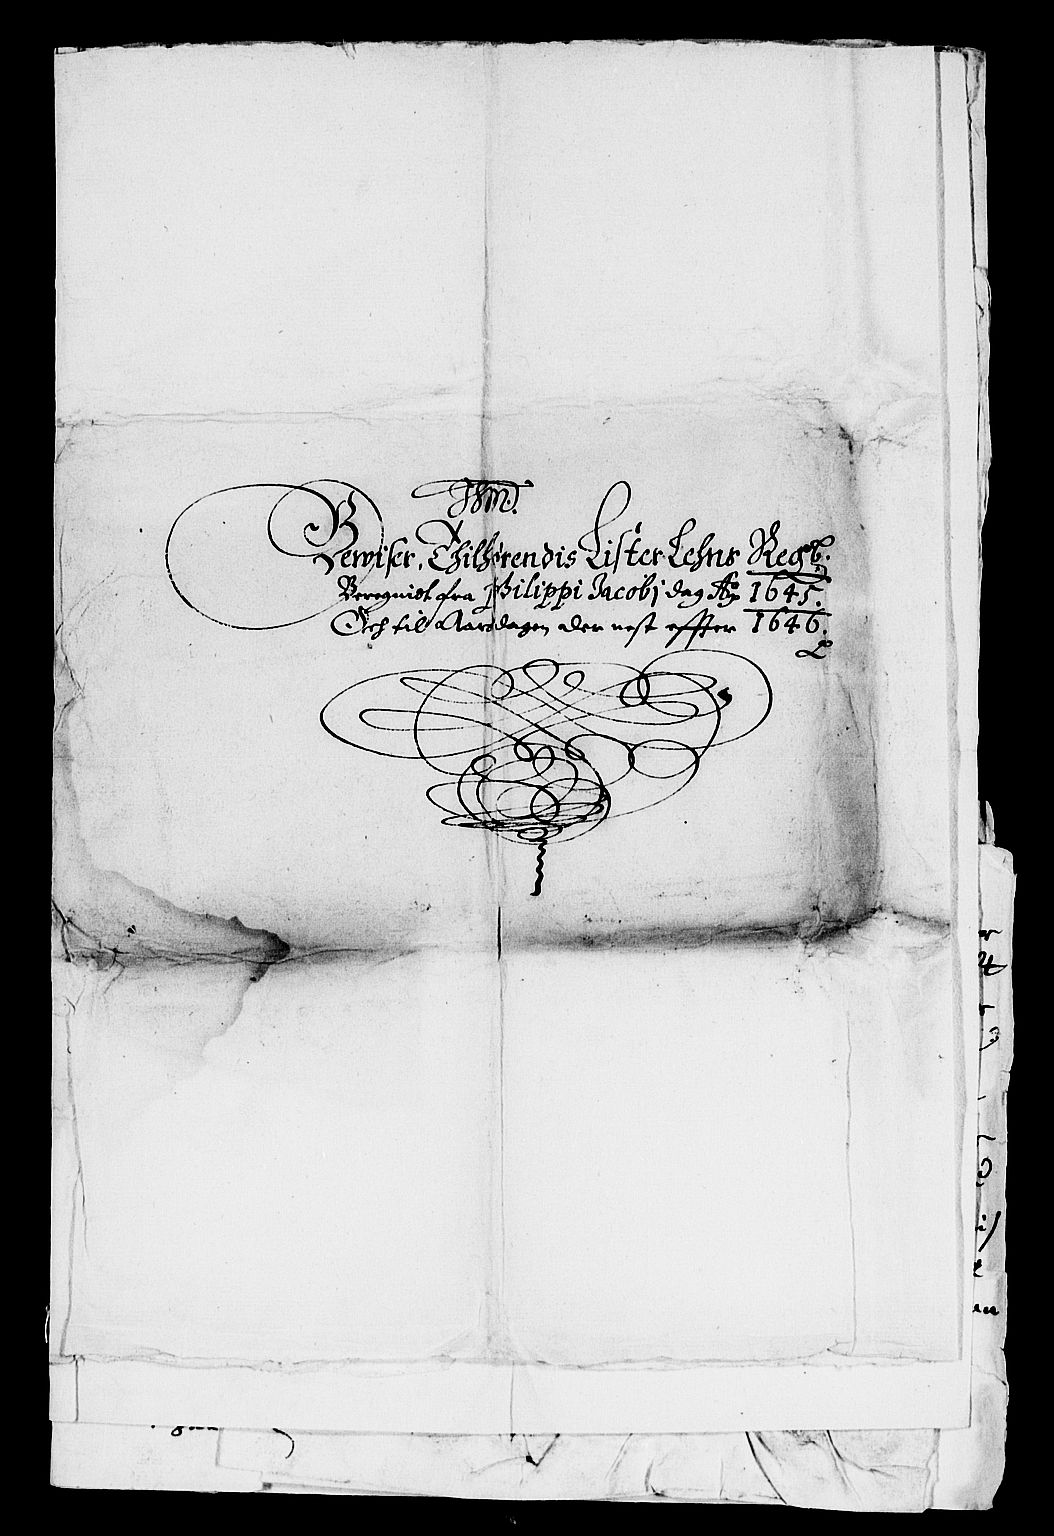 Bewiser, Thilhørendis Lister Lehns Regb:
Beregnidt fra Philippi Jacobj dag Aō 1645.
Och til Aarsdagen der nest effter 1646.